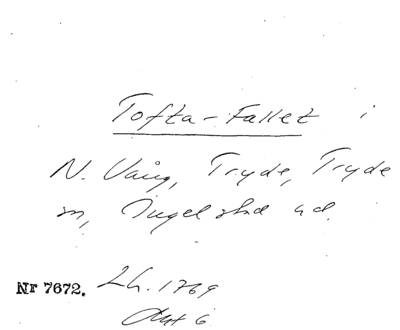 Tofta-Fallet i
N. Vång, Tryde, Tryde
sn, Ingelstad hd.
Nr 7672. Lh. 1769
Akt 6